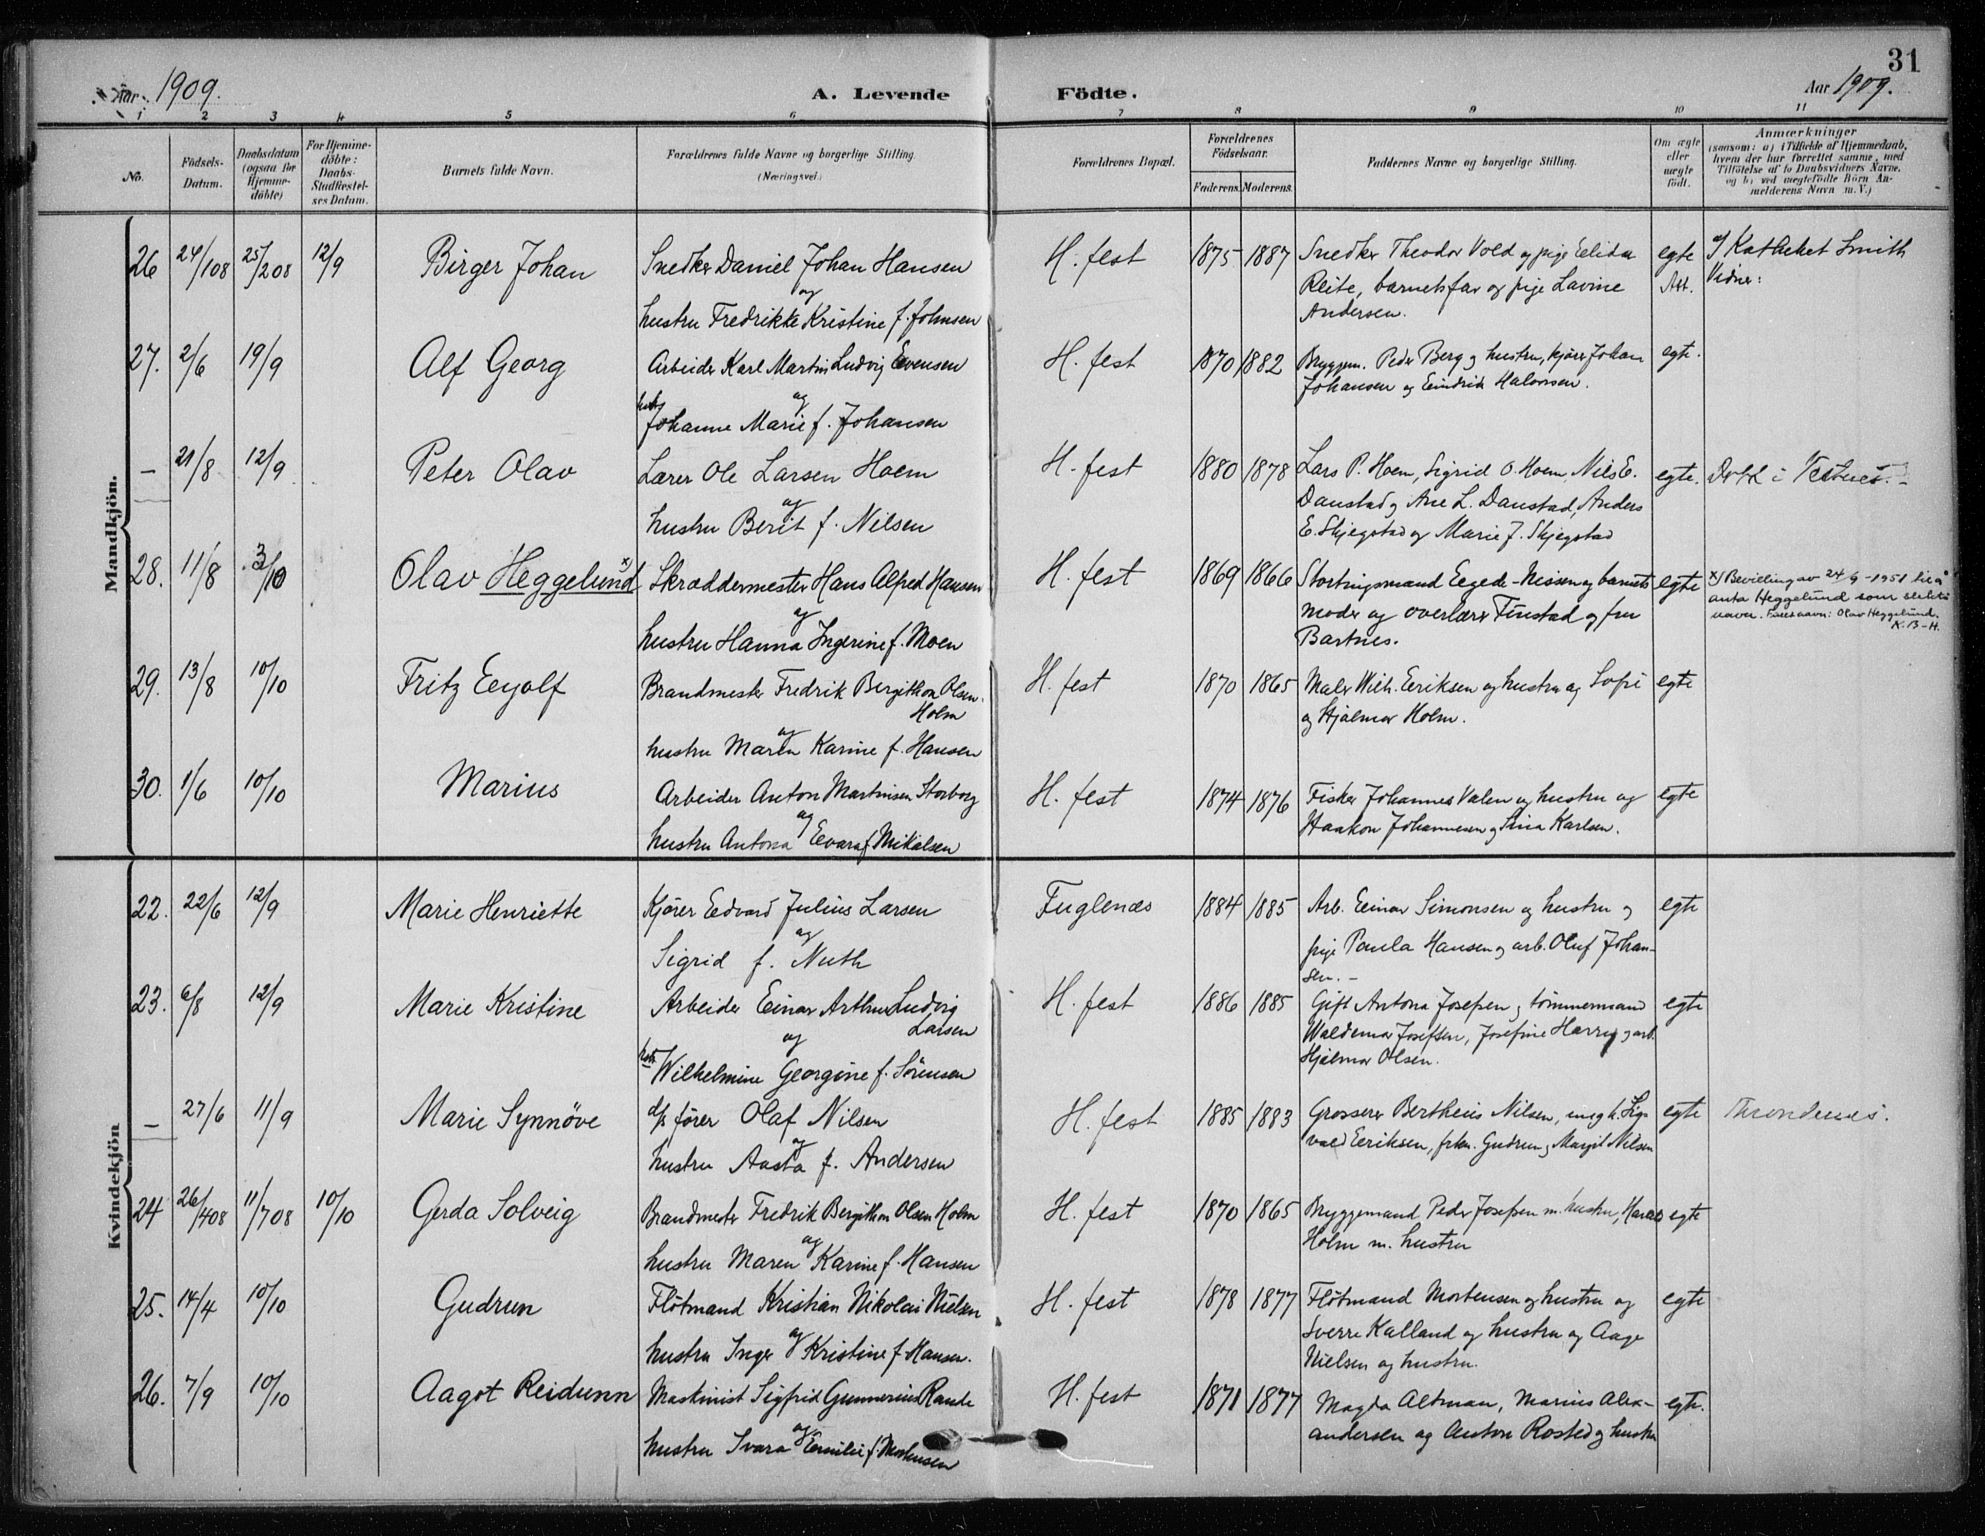 31
Aar 1909.
A. Levende
Födte.
Aar 1909.
1 2 3 4 5 6 7 8 9 10 11
No.
Födsels-Datum.
Daabsdatum (ogsaa for Hjemme-döbte)
For Hjemme-döbte: Daabs-Stadfæstel-ses Datum.
Barnets fulde Navn.
Forældrenes fulde Navne og borgerlige Stilling.
(Næringsvei.)
Forældrenes Bopæl.
Forældrenes Födselsaar.
Faderens. Moderens.
Faddernes Navne og borgerlige Stilling.
Om ægte eller uægte födt.
Anmærkninger
(saasom: a) i Tilfælde af Hjemmedaab,
hvem der har forrettet samme, med
Tilföielse af to Daabsvidners Navne,
og b) ved uegtefödte Börn An-
melderens Navn m. V.)
Mandkjön.
26 24/108 25/208 12/9 Birger Johan Snedker Daniel Johan Hansen H. fest 1875 1887 Snedker Theodor Vold og pige Elida egte a/ Katheket Smith
og Reite, barnets far og pige Lavine Att. Vidner:
hustru Fredrikke Kristine f. Johnsen Andersen.
27. 2/6 19/9 Alf Georg Arbeider Karl Martin Ludvig Evensen H. fest 1870 1882 Bryggem. Peder Berg og hustru, kjører Johan egte.
og Johansen og Eindrik Halvorsen.
hustr Johanne Marie f. Johansen
— 21/8 12/9 Peter Olav Lærer Ole Larsen Hoem H. fest 1880 1878 Lars P. Hoem, Sigrid O. Hoem, Nils E. egte. Døbt i Vestnes.
og Danstad og Ane L. Danstad, Anders
hustru Berit f. Nilsen E. Skjegstad og Marie J. Skjegstad
28. 11/8 3/10 Olav Heggelund x Skræddermester Hans Alfred Hansen H. fest 1869 1866 Stortingsmand Egede-Nissen og barnets egte x) Bevilling av 24/9-1951 til å
og moder og overlærer Finstad og fru anta Heggelund som slekts
hustru Hanna Ingerine f. Moen Bartnes. navn. Fullt navn: Olav Heggelund.
K. B-H.
29. 13/8 10/10 Fritz Eyolf Brandmester Fredrik Bergithon Olsen H. fest 1870 1865 Maler Wilh. Eriksen og hustru og Sofie egte
Holm og Hjalmar Holm.
og
hustru Maren Karine f. Hansen
30. 1/6 10/10 Marius Arbeider Anton Martinsen Storborg H. fest 1874 1876 Fisker Johannes Valen og hustru og egte
og Haakon Johannesen og Sina Karlsen.
hustru Antona Evara f. Mikalsen
Kvindekjön
22. 22/6 12/9 Marie Henriette Kjører Edvard Julius Larsen Fuglenæs 1884 1885 Arb. Einar Simonsen og hustru og egte
og pige Paula Hansen og arb. Oluf Johan-
Sigrid f. Nuth sen. –
23. 6/8 12/9 Marie Kristine Arbeider Einar Arthur Ludvig H. fest 1886 1885 Gift Antona Josefsen og tømmermand egte
Larsen Waldemar Josefsen, Josefine Harry og arb.
og Hjalmar Olsen.
hustr Wilhelmine Georgine f. Sörensen
— 27/6 11/9 Marie Synnöve d/p fører Olaf Nilsen H. fest 1885 1883 Grosserer Bertheus Nilsen, ungk. Sig- egte Throndenes.
og vald Eriksen, frkn. Gudrun og Margit Nilsen
hustru Aasta f. Andersen
24 26/408 11/708 10/10 Gerda Solveig Brandmester Fredrik Bergithon Olsen Holm H. fest 1870 1865 Bryggemand Peder Josefsen m. hustru, Harald egte
og Holm m. hustru
hustru Maren Karine f. Hansen
25. 14/4 10/10 Gudrun Flötmand Kristian Nikolai Nielsen H. fest 1878 1877 Flötmand Mortensen og hustru og egte
og Sverre Kalland og hustru og Aage
hustru Inger Kristine f. Hansen. Nielsen og hustru.
26. 7/9 10/10 Aagot Reidunn Maskinist Sigfrid Gunnerius Rande H. fest 1871 1877 Magda Altman, Marius Alex- egte.
og andersen og Anton Rosted og hustru
hustru Svara Emilie f. Mortensen